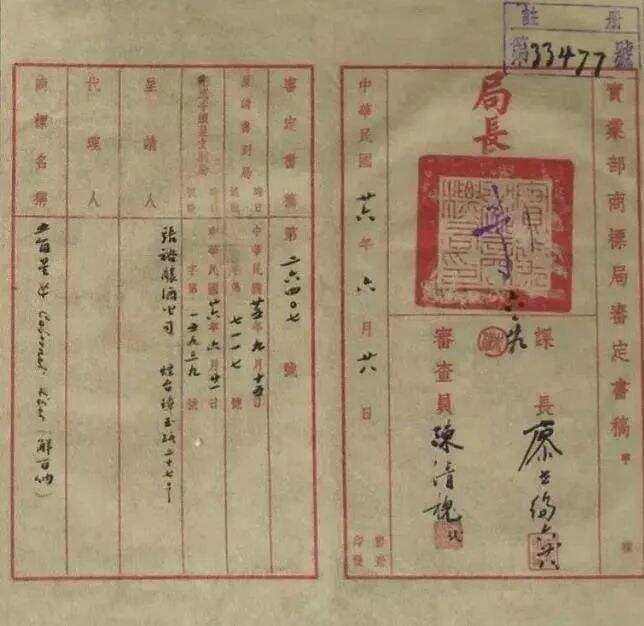 註冊
第33477號
實業部商標局審定書稿 甲種
局長
課長
審查員 陳清槐 代
中華民國廿六年六月廿八日
審定書稿第二六四〇七號
呈請書到局 時日 中華民國廿五年九月十五日
號數 字第七一一七號
時日 中華民國廿六年六月廿一日
號數 字第一五九三九號
呈請人 張裕釀酒公司 煙台
代理人
商標名稱 Cabernet (解百納)